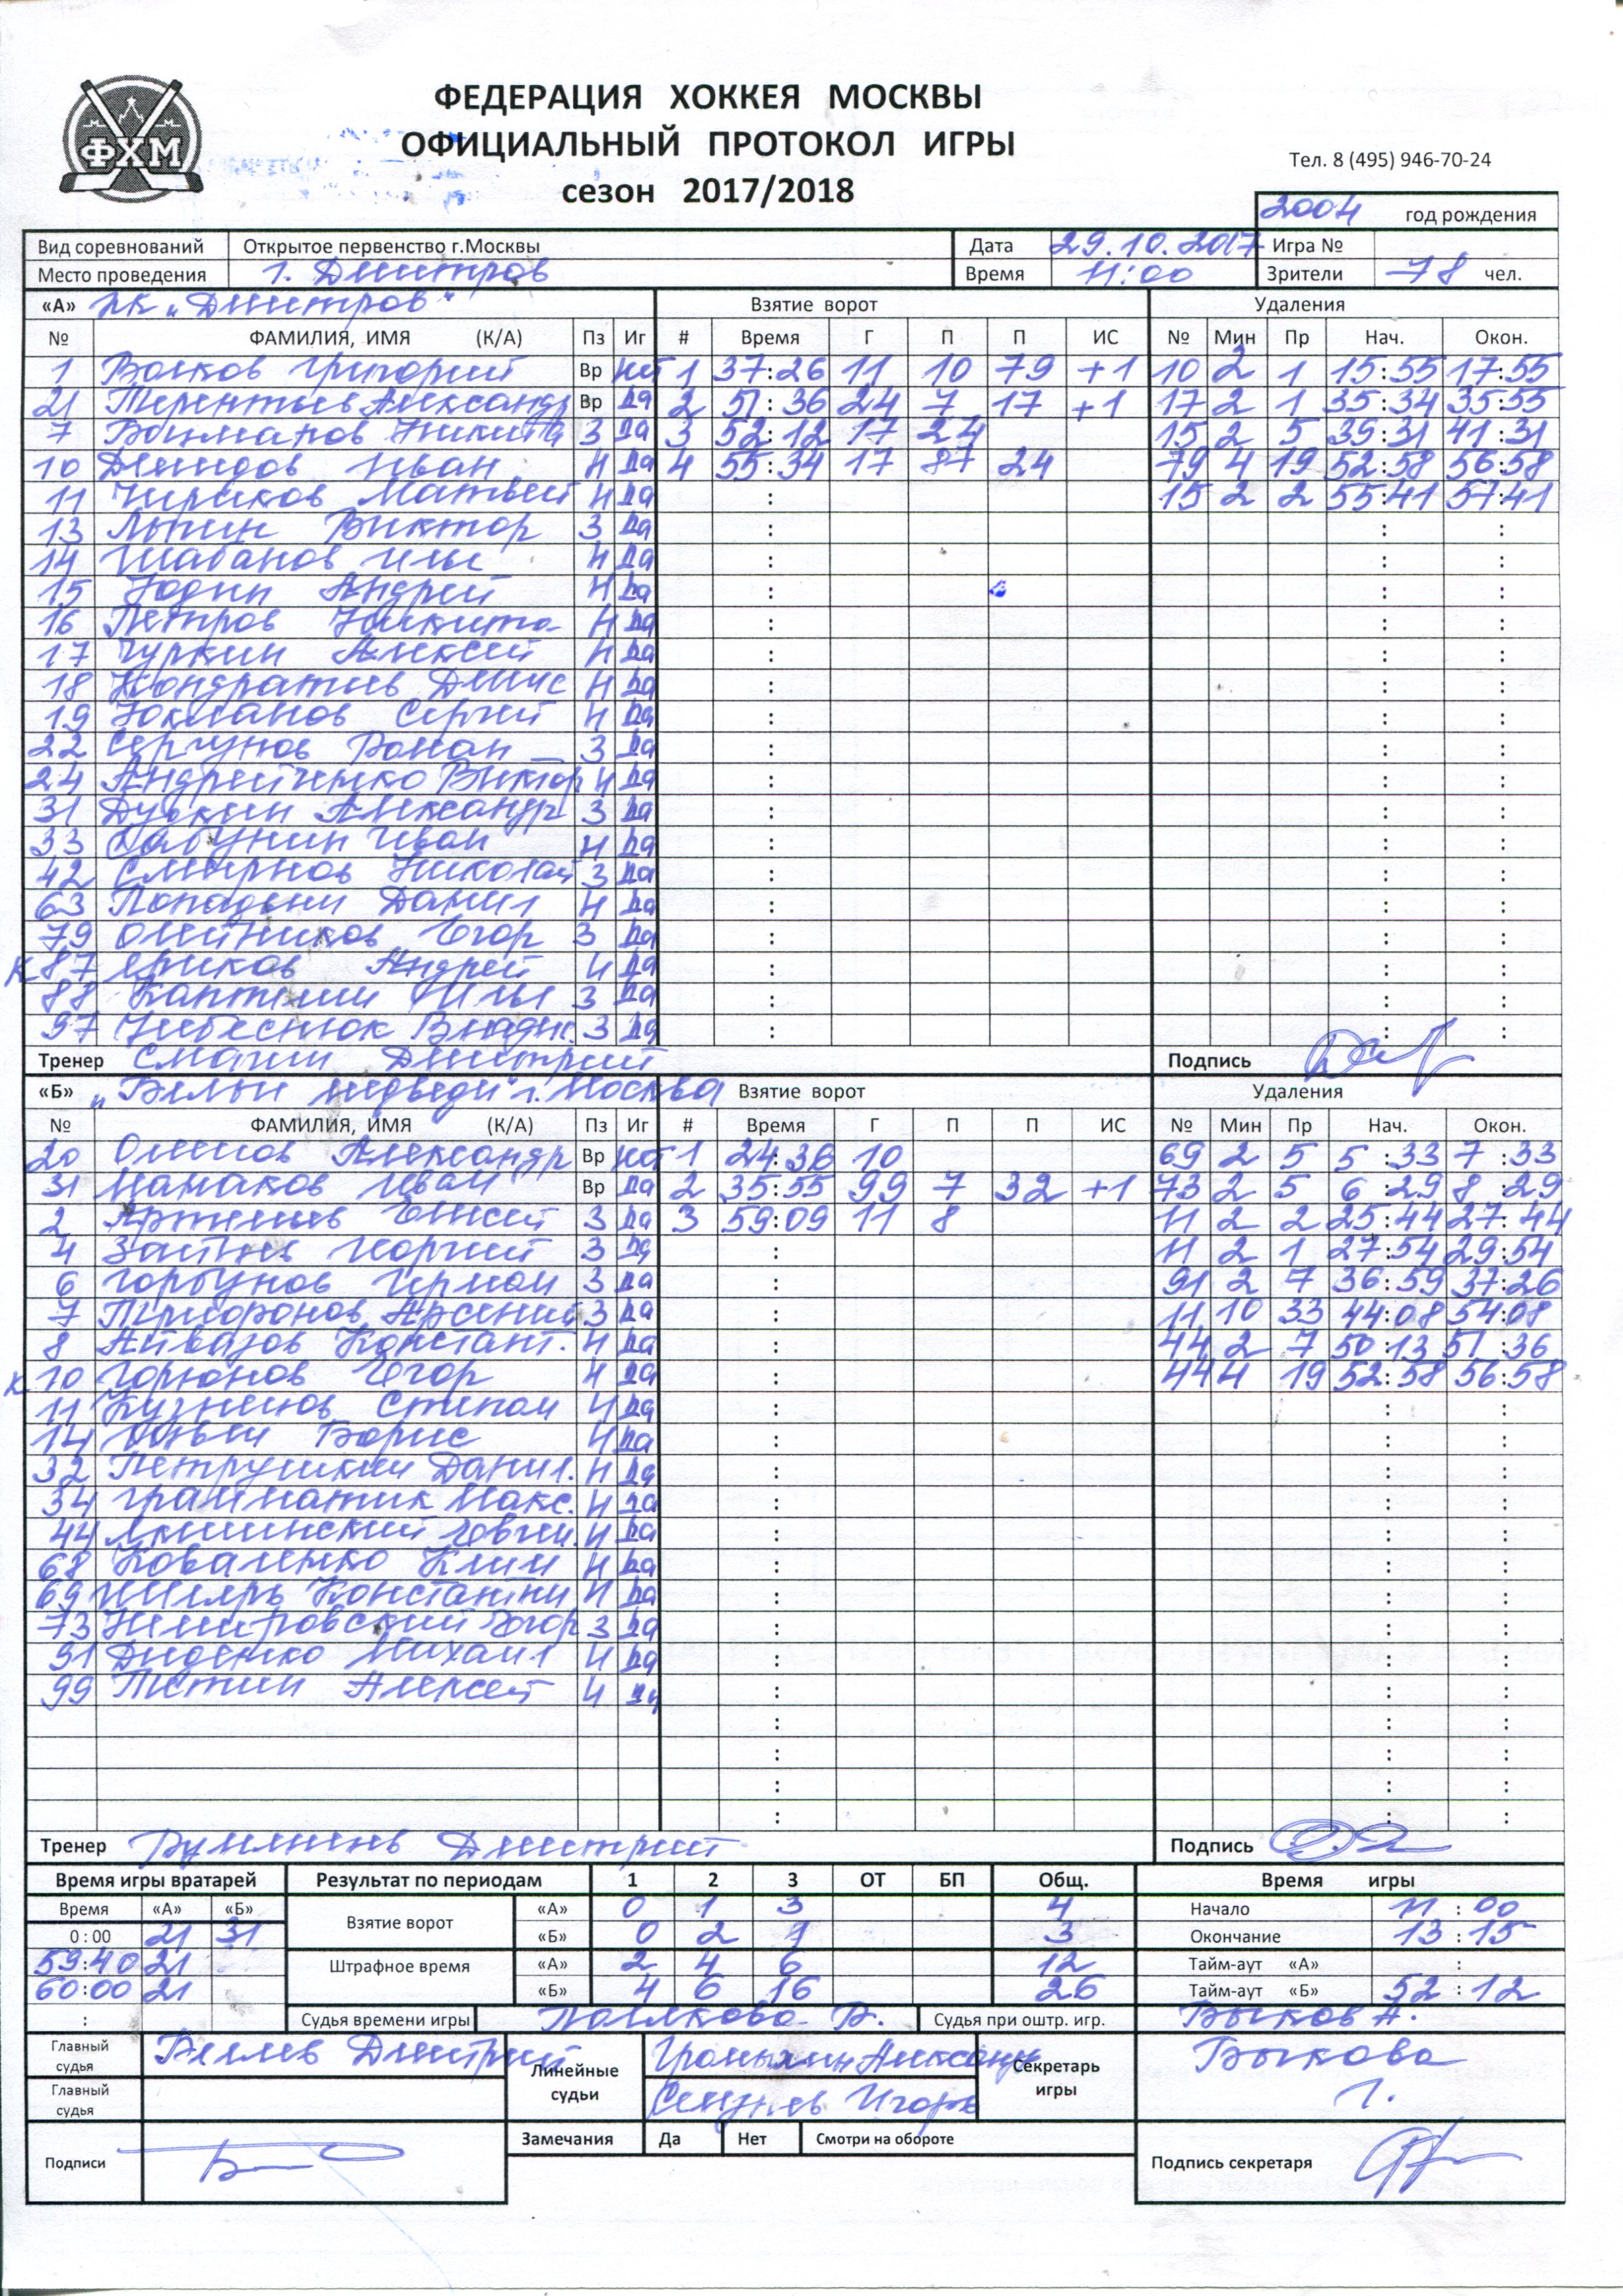 ФЕДЕРАЦИЯ ХОККЕЯ МОСКВЫ
ОФИЦИАЛЬНЫЙ ПРОТОКОЛ ИГРЫ
сезон 2017/2018
ФХМ
Тел. 8 (495) 946-70-24
2004 год рождения
Вид соревнований Открытое первенство г.Москвы Дата 29.10.2017 Игра №
Место проведения г. Дмитров Время 11:00 Зрители 78 чел.
«А» ХК „Дмитров" Взятие ворот Удаления
№ ФАМИЛИЯ, ИМЯ (К/А) Пз Иг # Время Г П П ИС № Мин Пр Нач. Окон.
1 Волков Григорий Вр нет 1 37:26 11 10 79 +1 10 2 1 15:55 17:55
21 Терентьев Александр Вр да 2 51:36 24 7 17 +1 17 2 1 35:34 35:55
7 Никита З да 3 52:12 17 24 15 2 5 39:31 41:31
10 Демидов Иван Н да 4 55:34 17 87 24 79 4 19 52:58 56:58
11 Чириков Матвей Н да 15 2 2 55:41 57:41
13 Виктор З да :
14 Шабанов Илья Н да :
15 Юдин Андрей Н да :
16 Петров Никита Н да :
17 Чуркин Алексей Н да :
18 Кондратьев Денис Н да :
19 Юкманов Сергей Н да :
22 Сергунов Роман З да :
24 Андрейченко Виктор Н да :
31 Александр З да :
33 Иван Н да :
42 Смирнов Николай З да :
63 Данил Н да :
79 Олейников Егор З да :
К 87 Андрей Н да :
88 Илья З да :
97 З да :
Тренер Смагин Дмитрий Подпись
«Б» „Белые медведи" г. Москва Взятие ворот Удаления
№ ФАМИЛИЯ, ИМЯ (К/А) Пз Иг # Время Г П П ИС № Мин Пр Нач. Окон.
20 Александр Вр нет 1 24:36 10 69 2 5 5:33 7:33
31 Мамаков Иван Вр да 2 35:55 99 7 32 +1 73 2 5 6:29 8:29
2 Артемьев Елисей З да 3 59:09 11 8 11 2 2 25:44 27:44
4 Зайцев Георгий З да : 11 2 1 27:54 29:54
6 Горбунов Герман З да : 91 2 7 36:59 37:26
7 Арсений З да : 11 10 33 44:08 54:08
8 Айвазов Констант. Н да : 44 2 7 50:13 51:36
К 10 Горюнов Егор Н да : 44 4 19 52:58 56:58
11 Кузнецов Степан Н да :
14 Борис Н да :
32 Петрушкин Данил. Н да :
34 Грамматик Макс. Н да :
44 Н да :
68 Коваленко Клим Н да :
69 Константин Н да :
73 Немировский Егор З да :
91 Диденко Михаил Н да :
99 Алексей Н да :
Тренер Дмитрий Подпись
Время игры вратарей Результат по периодам 1 2 3 ОТ БП Общ. Время игры
Время «А» «Б» Взятие ворот «А» 0 1 3 4 Начало 11:00
0:00 21 31 «Б» 0 2 1 3 Окончание 13:15
59:40 21 Штрафное время «А» 2 4 6 12 Тайм-аут «А» :
60:00 21 «Б» 4 6 16 26 Тайм-аут «Б» 52:12
: Судья времени игры Полякова В. Судья при оштр. игр. Быков А.
Главный судья Беляев Дмитрий Линейные судьи Секретарь игры Быкова Г.
Главный судья Игорь
Замечания Да Нет Смотри на обороте
Подписи Подпись секретаря